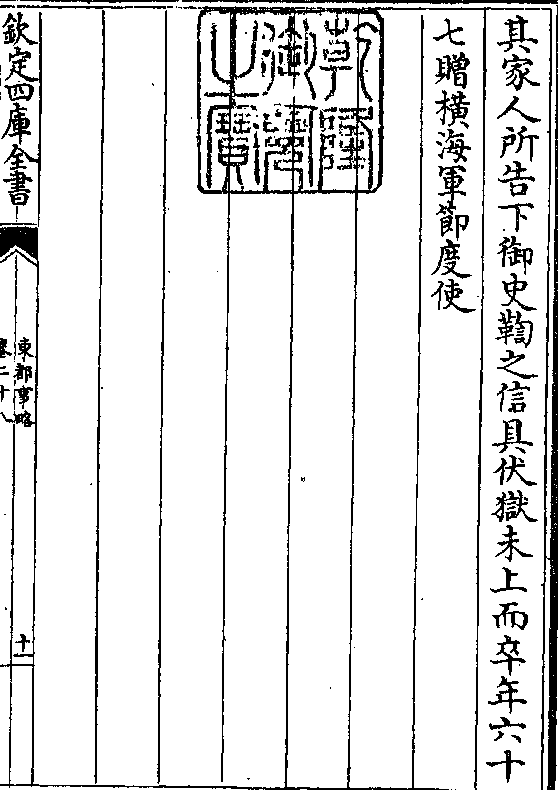 其家人所告下御史鞫之信具伏獄未上而卒年六十
七贈橫海軍節度使
乾隆御覽之寶
欽定四庫全書
東都事略
卷二十八
十一